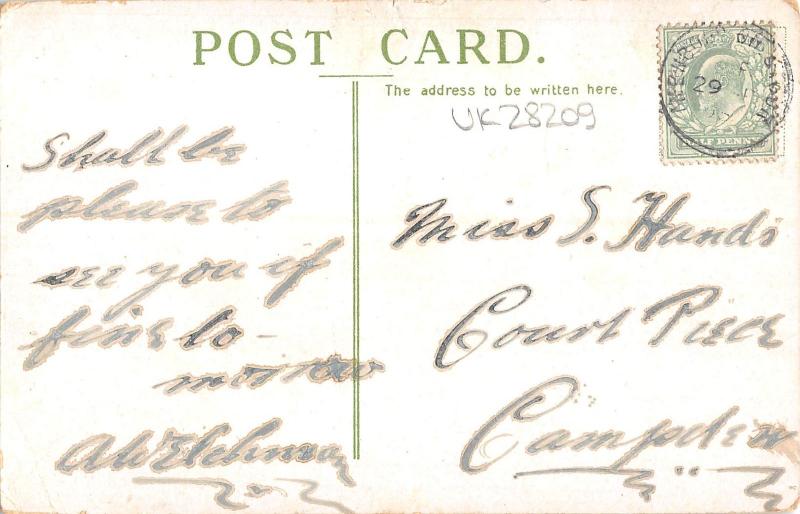 POST CARD.
The address to be written here.
UK28209
Shall be
please to
see you if
fine to-
morrow
Miss S. Hands
Court Piece
Campden
29
HALF PENNY